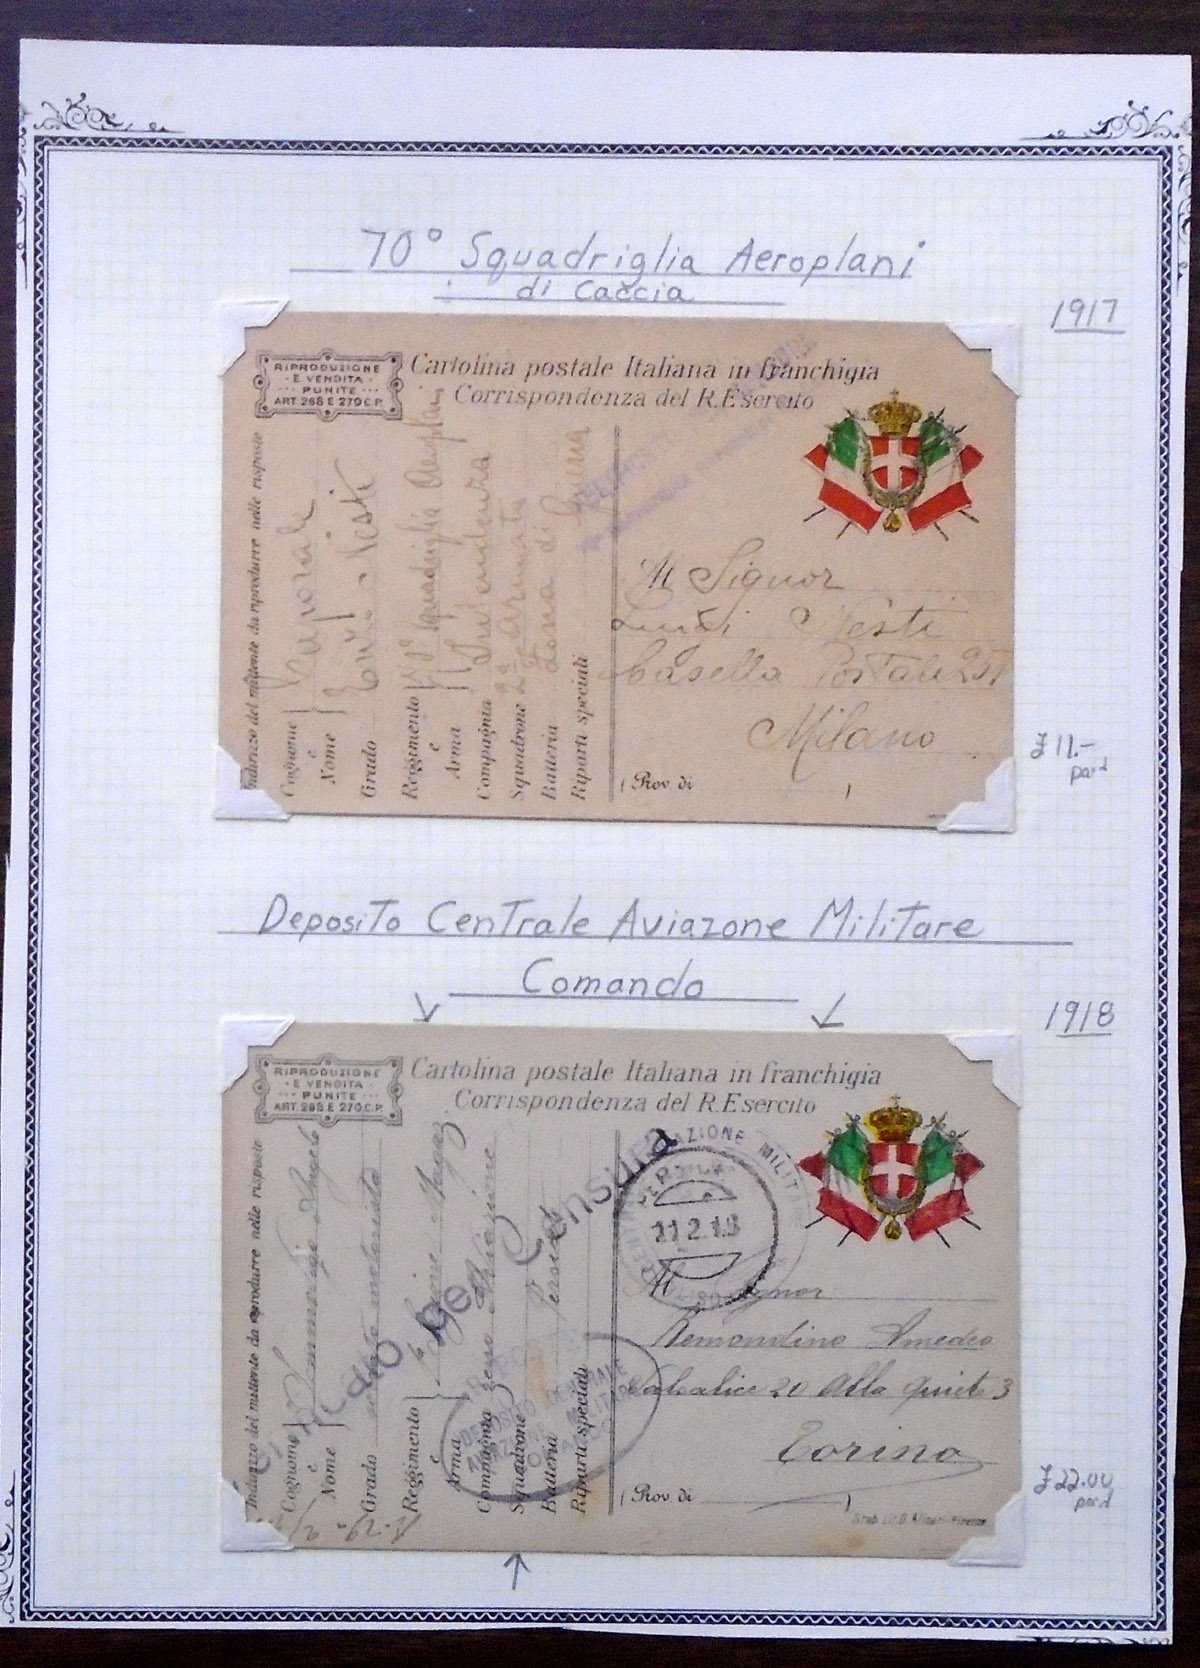 70° Squadriglia Aeroplani
di Caccia
1917
RIPRODUZIONE
E VENDITA
PUNITE
ART. 268 E 270 C.P.
Cartolina postale Italiana in franchigia
Corrispondenza del R. Esercito
Indirizzo del mittente da riprodurre nelle risposte
Cognome
e
Nome
Caporale
Nesti
Grado
Reggimento
e
Arma
70° Squadriglia Aeroplani
Compagnia
Intendenza
Squadrone
2a Armata
Batteria
Zona di Guerra
Riparti speciali
Al Signor
Luigi Nesti
Casella Postale 251
Milano
(Prov di )
£11.-
paid
Deposito Centrale Aviazone Militare
Comando
1918
RIPRODUZIONE
E VENDITA
PUNITE
ART. 268 E 270 C.P.
Cartolina postale Italiana in franchigia
Corrispondenza del R. Esercito
Indirizzo del mittente da riprodurre nelle risposte
Cognome
e
Nome
Angelo
Grado
Reggimento
e
Arma
Compagnia
Aviazione
Squadrone
Batteria
Riparti speciali
per Censura
AZIONE MILITARE
21.2.18
DEPOSITO CENTRALE
MILITARE
Al Signor
Remondino Amedeo
Valsalice 20 Alla 3
Torino
(Prov di )
£22.00
paid